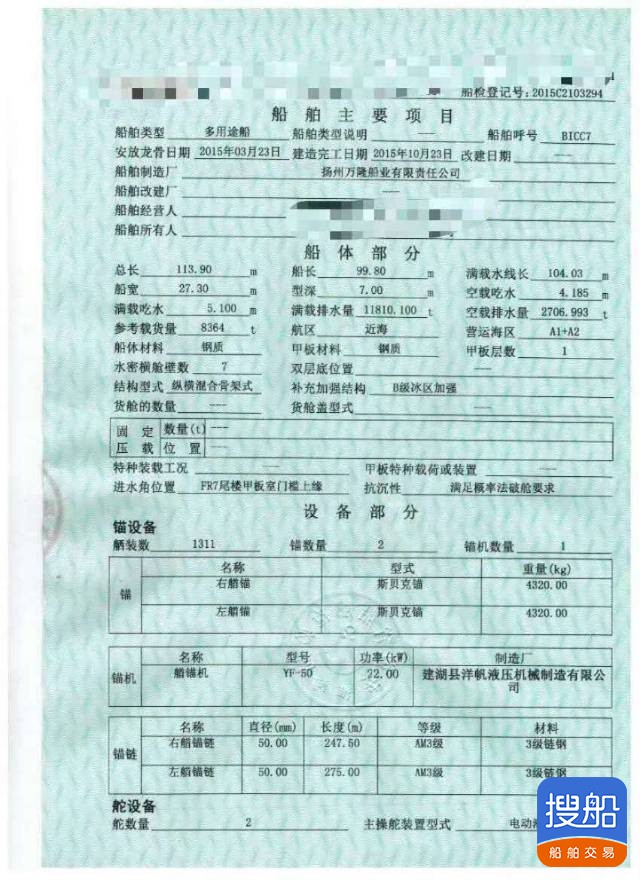 船检登记号: 2015C2103294
船舶主要项目
船舶类型 多用途船 船舶类型说明 --- 船舶呼号 BICC7
安放龙骨日期 2015年03月23日 建造完工日期 2015年10月23日 改建日期 ---
船舶制造厂 扬州万隆船业有限责任公司
船舶改建厂 ---
船舶经营人
船舶所有人
船体部分
总长 113.90 m 船长 99.80 m 满载水线长 104.03 m
船宽 27.30 m 型深 7.00 m 空载吃水 4.185 m
满载吃水 5.100 m 满载排水量 11810.100 t 空载排水量 2706.993 t
参考载货量 8364 t 航区 近海 营运海区 A1+A2
船体材料 钢质 甲板材料 钢质 甲板层数 1
水密横舱壁数 7 双层底位置 ---
结构型式 纵横混合骨架式 补充加强结构 B级冰区加强
货舱的数量 --- 货舱盖型式 ---
固定压载 数量(t) ---
位置 ---
特种装载工况 --- 甲板特种载荷或装置 ---
进水角位置 FR7尾楼甲板室门槛上缘 抗沉性 满足概率法破舱要求
设备部分
锚设备
舾装数 1311 锚数量 2 锚机数量 1
锚 名称 型式 重量(kg)
右艏锚 斯贝克锚 4320.00
左艏锚 斯贝克锚 4320.00
锚机 名称 型号 功率(kW) 制造厂
艏锚机 YF-50 22.00 建湖县洋帆液压机械制造有限公
司
锚链 名称 直径(mm) 长度(m) 等级 材料
右艏锚链 50.00 247.50 AM3级 3级链钢
左艏锚链 50.00 275.00 AM3级 3级链钢
舵设备
舵数量 2 主操舵装置型式 电动
搜船
船舶交易